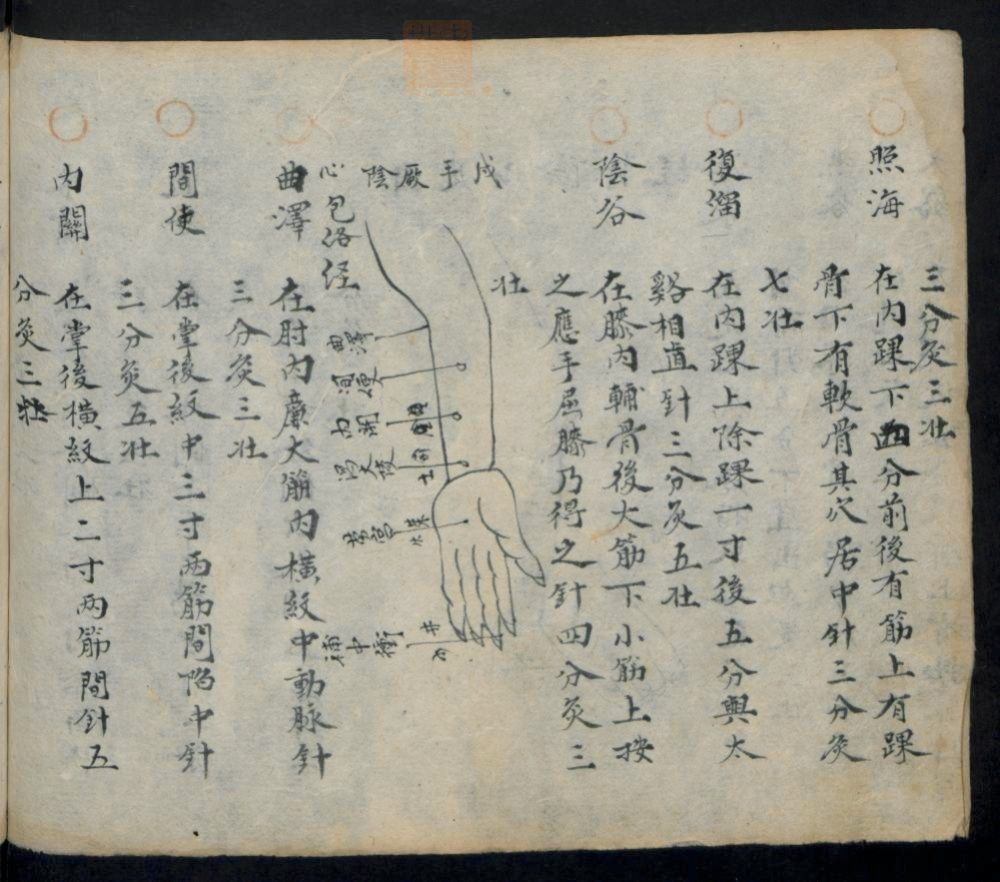 三分灸三壮
照海
在内踝下四分前後有筋上有踝
骨下有軟骨其穴居中針三分灸
七壮
復溜
在内踝上除踝一寸後五分與太
谿相直針三分灸五壮
陰谷
在膝内輔骨後大筋下小筋上按
之應手屈膝乃得之針四分灸三
壮
戌手厥陰
心包络经
曲澤
間使
内關
勞宮
中衝
井
曲澤
在肘内廉大筋内横紋中動脉針
三分灸三壮
間使
在掌後紋中三寸两筋間陷中針
三分灸五壮
内關
在掌後横紋上二寸两筋間針五
分灸三壮